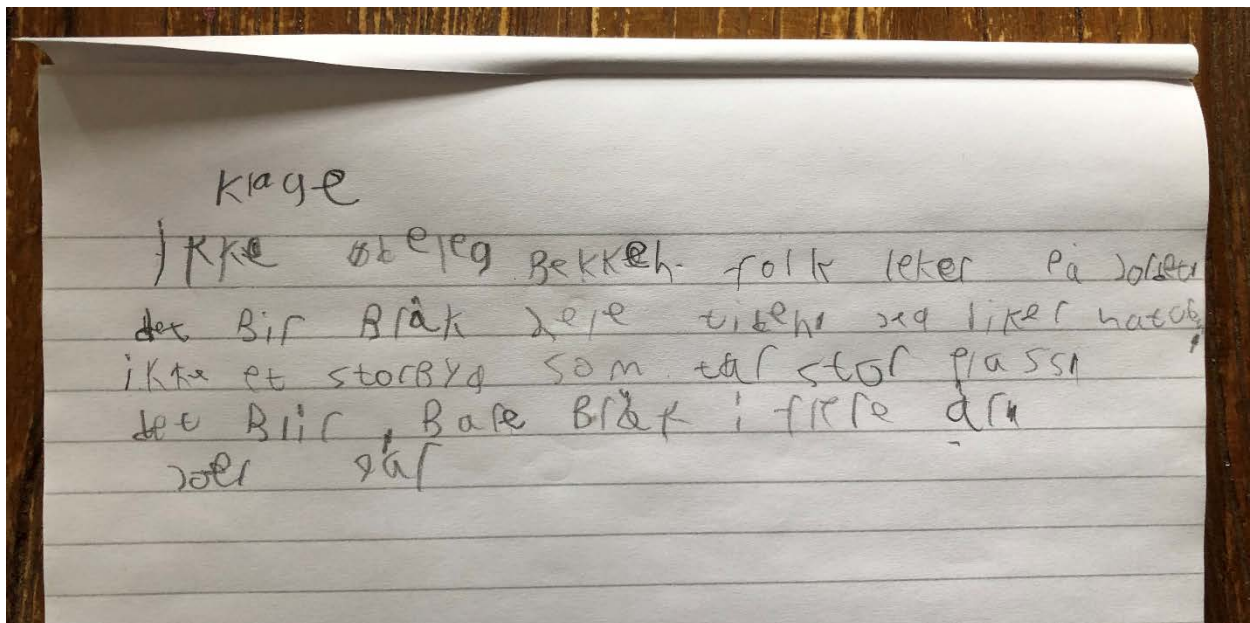 Klage
Ikke øteleg Bekken. folk leker på jordet.
det Bir Bråk hele tiden. jeg liker natur,
ikke et storByg som tar stor plass.
det Bliir Bare Bråk i flere år.